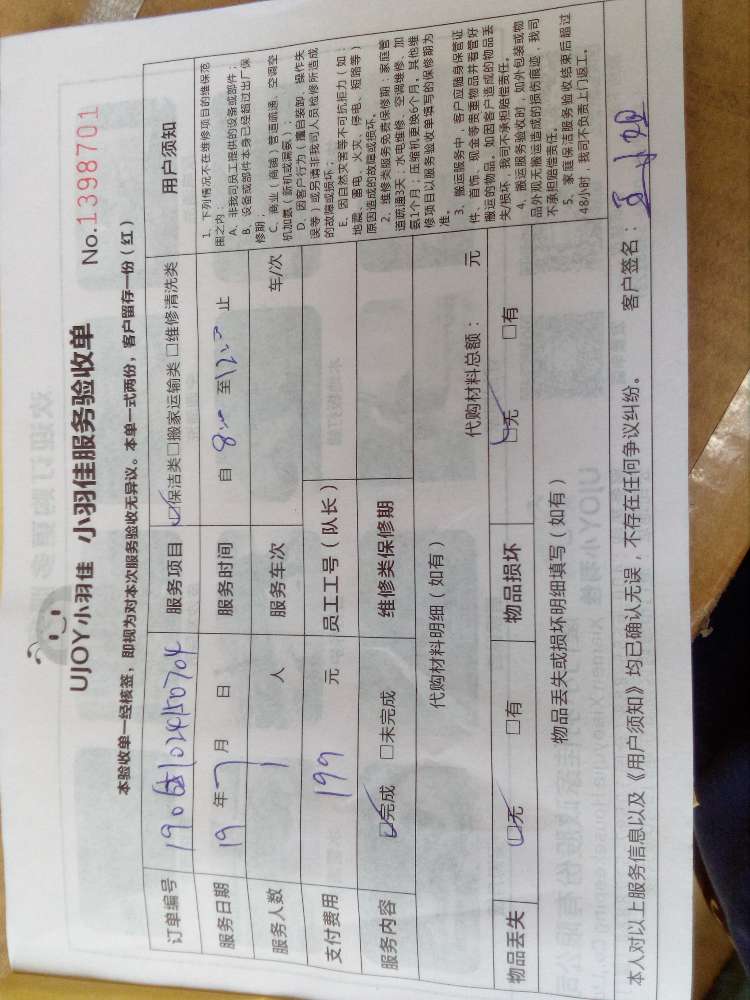 UJOY小羽佳 小羽佳服务验收单
No.1398701
本验收单一经核签，即视为对本次服务验收无异议。本单一式两份，客户留存一份（红）
订单编号 服务项目 ☑保洁类□搬家运输类 □维修清洗类
服务日期 19 年 7 月 日 服务时间 自 8:00 至 12:00 止
服务人数 1 人 服务车次 车/次
支付费用 199 元 员工工号（队长）
服务内容 ☑完成 □未完成 维修类保修期
代购材料明细（如有） 代购材料总额： 元
物品丢失 ☑无 □有 物品损坏 ☑无 □有
物品丢失或损坏明细填写（如有）
用户须知
1、下列情况不在维修项目的维保范
围之内：
A、非我司员工提供的设备或部件；
B、设备或部件本身已经超过出厂保
修期；
C、商业（商铺）管道疏通、空调空
机加氨（新机或漏氨）；
D、因客户行为（擅自装卸、操作失
误等）或另请非我司人员检修所造成
的故障或损坏；
E、因自然灾害等不可抗拒力（如：
地震、雷电、火灾、停电、短路等）
原因造成的故障或损坏。
2、维修类服务免费保修期：家庭管
道疏通3天；水电维修、空调维修、加
氨1个月；压缩机更换6个月。其他维
修项目以服务验收单填写的保修期为
准。
3、搬运服务中，客户应随身保管证
件、首饰、现金等贵重物品并看管好
搬运的物品。如因客户造成的物品丢
失/损坏，我司不承担赔偿责任。
4、搬运服务验收时，如外包装或物
品外观无搬运造成的损伤痕迹，我司
不承担赔偿责任。
5、家庭保洁服务验收结束后超过
48小时，我司不负责上门返工。
本人对以上服务信息以及《用户须知》均已确认无误，不存在任何争议纠纷。 客户签名：